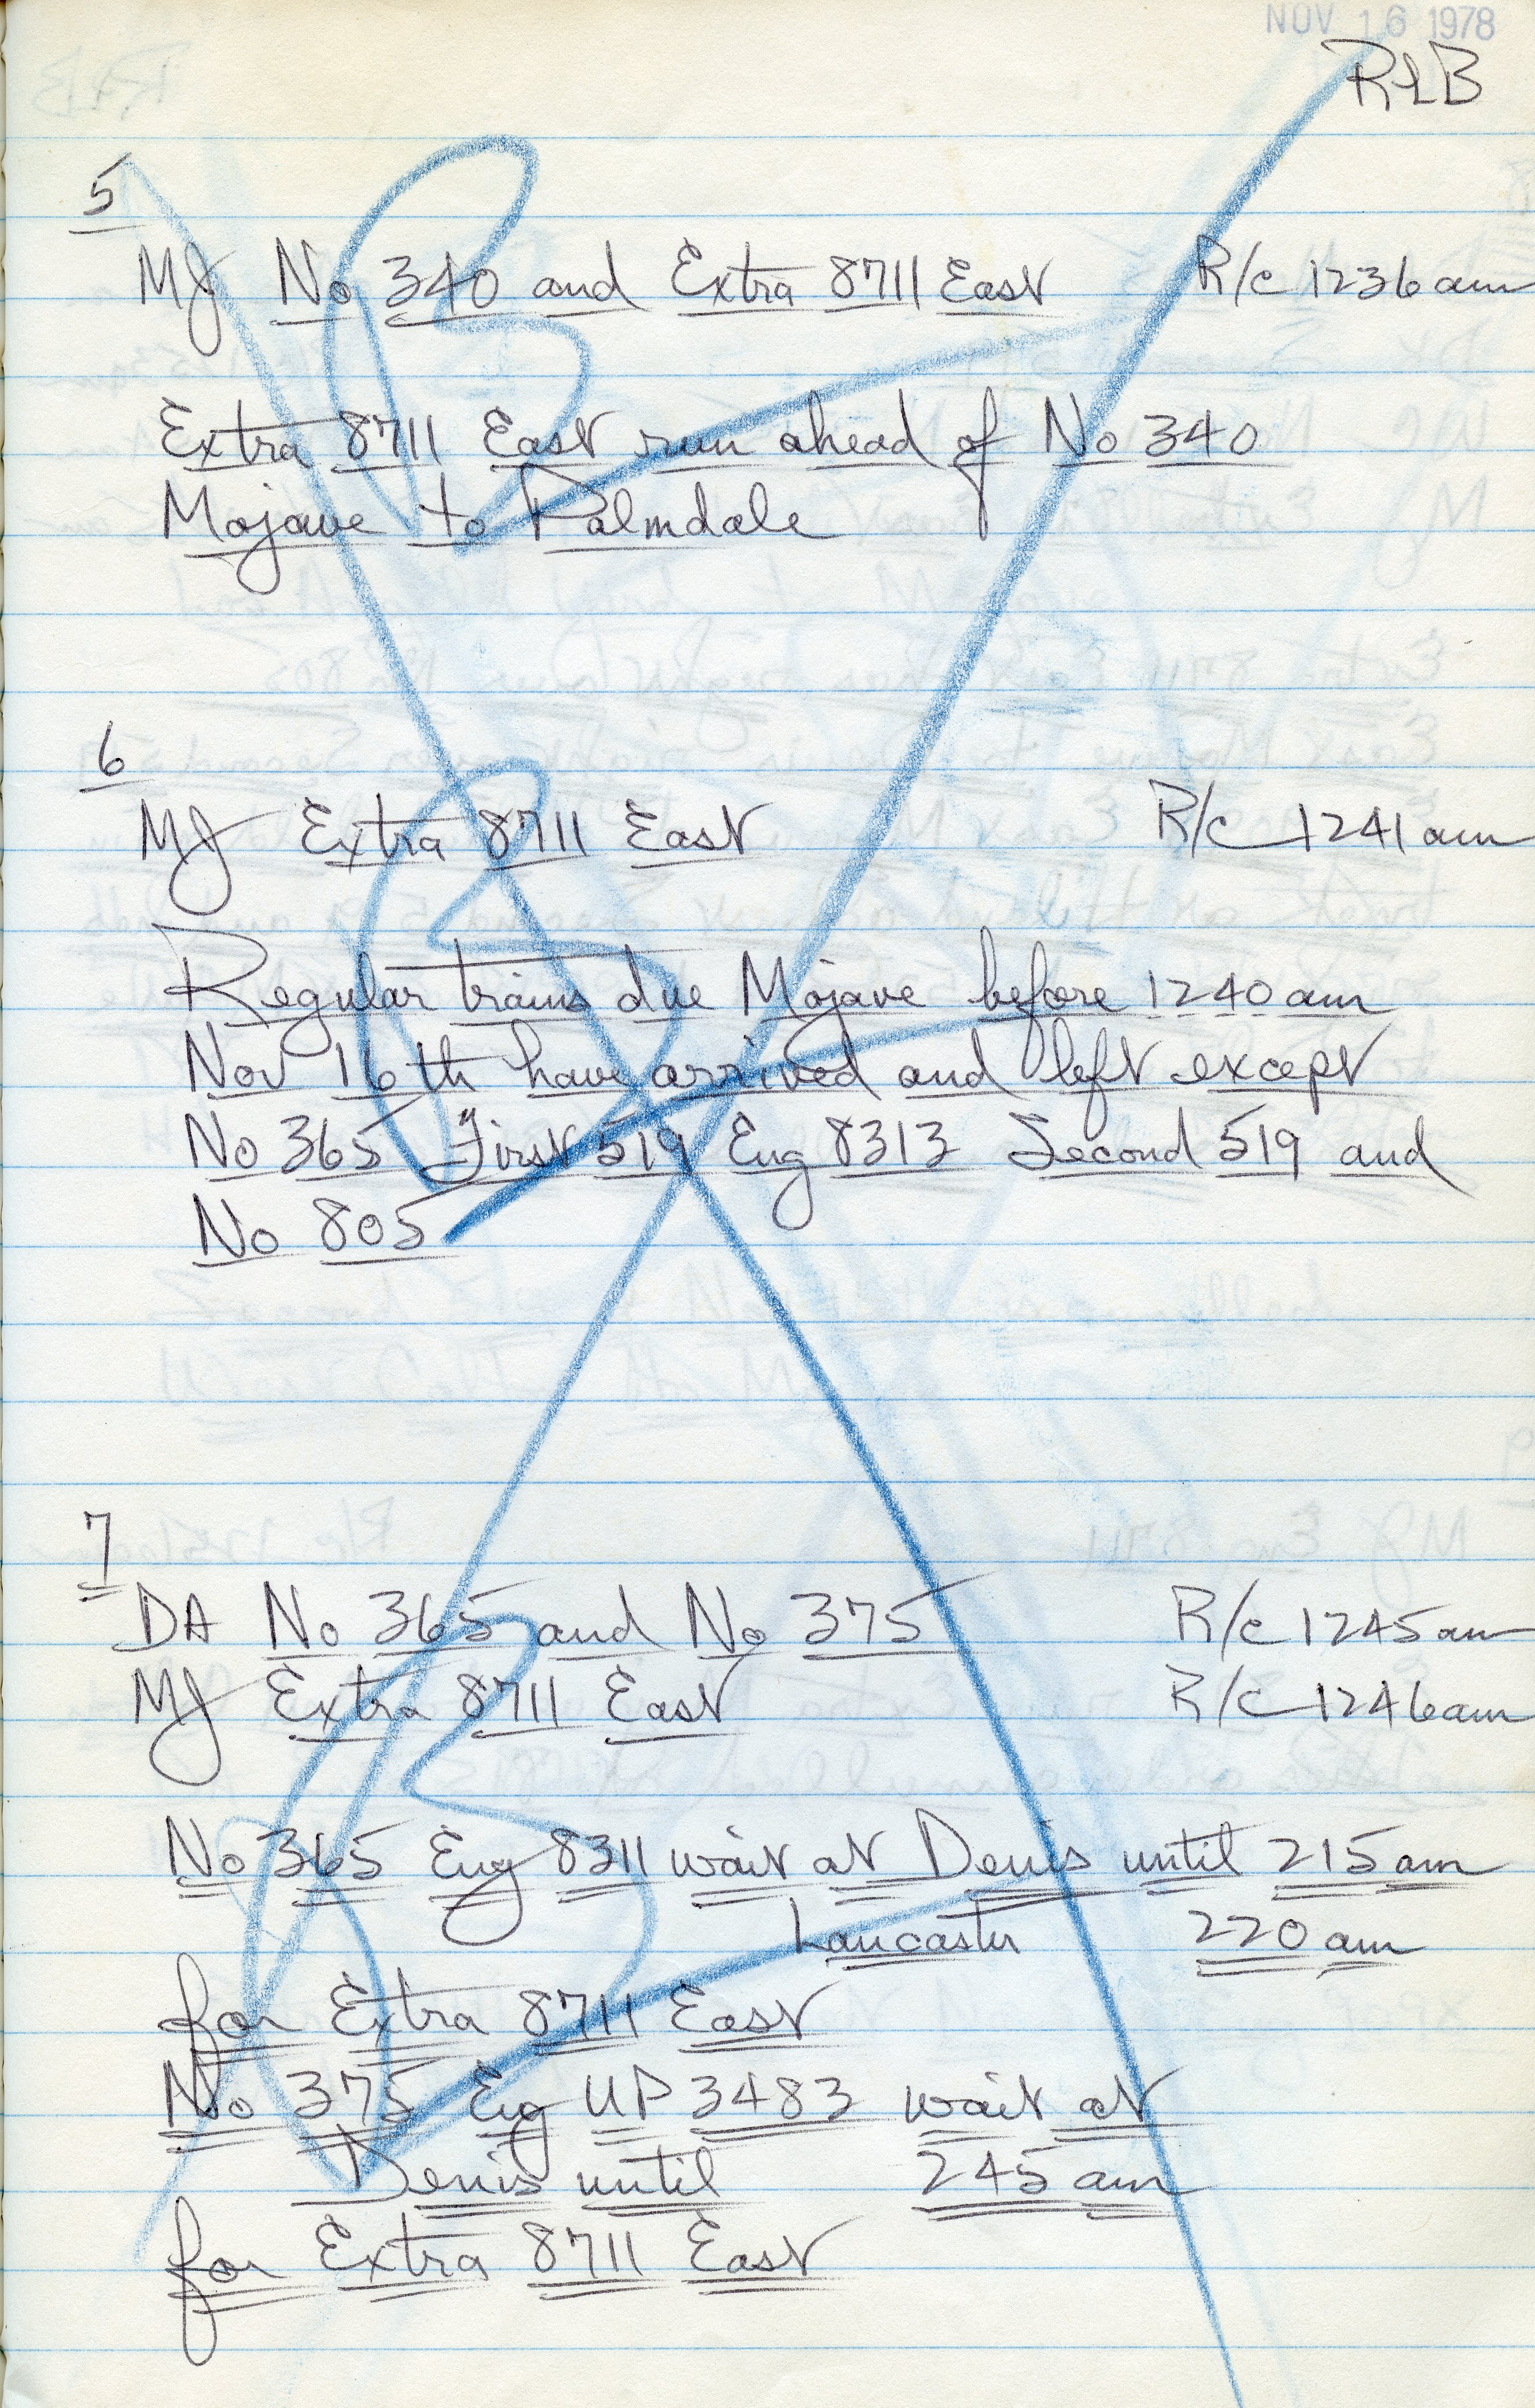 NOV 16 1978
RLB
5
MJ No 340 and Extra 8711 East R/c 1236am
Extra 8711 East run ahead of No 340
Mojave to Palmdale
6
MJ Extra 8711 East R/c 1241am
Regular trains due Mojave before 1240am
Nov 16th have arrived and left except
No 365 First 519 Eng 8313 Second 519 and
No 805
7
DA No 365 and No 375 R/c 1245am
MJ Extra 8711 East R/c 1246am
No 365 Eng 8311 wait at Denis until 215am
Lancaster 220am
for Extra 8711 East
No 375 Eng UP 3483 wait at
Denis until 245am
for Extra 8711 East